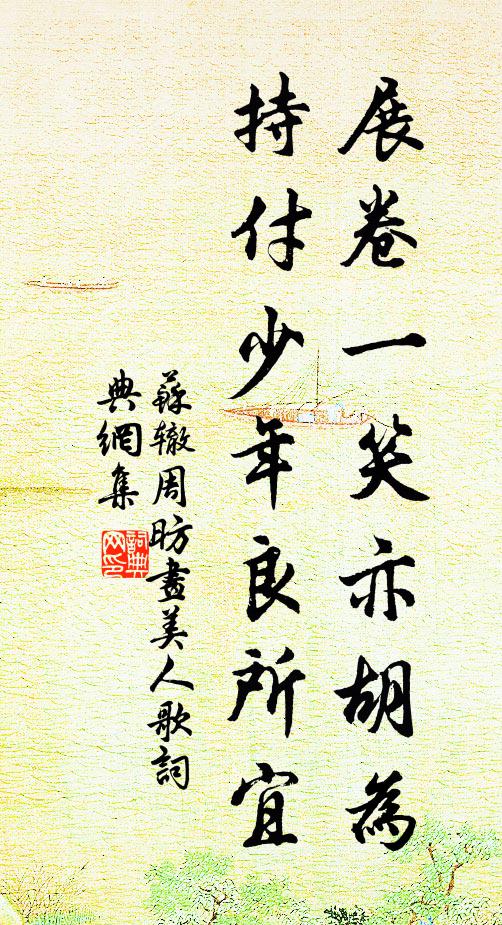 展卷一笑亦胡為
持付少年良所宜
蘇轍周昉畫美人歌詞
典網集
詞典
网印